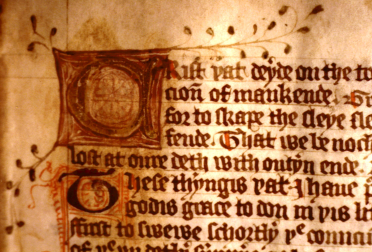 CRist þat deyde on the
cioun of mankende.
for to skape the sleye
fende. That we be
lost at oure deth with outyn ende.
These thyngis þat I haue
godis grace to don in þis
ffirst to swewe schortly þe
of þe